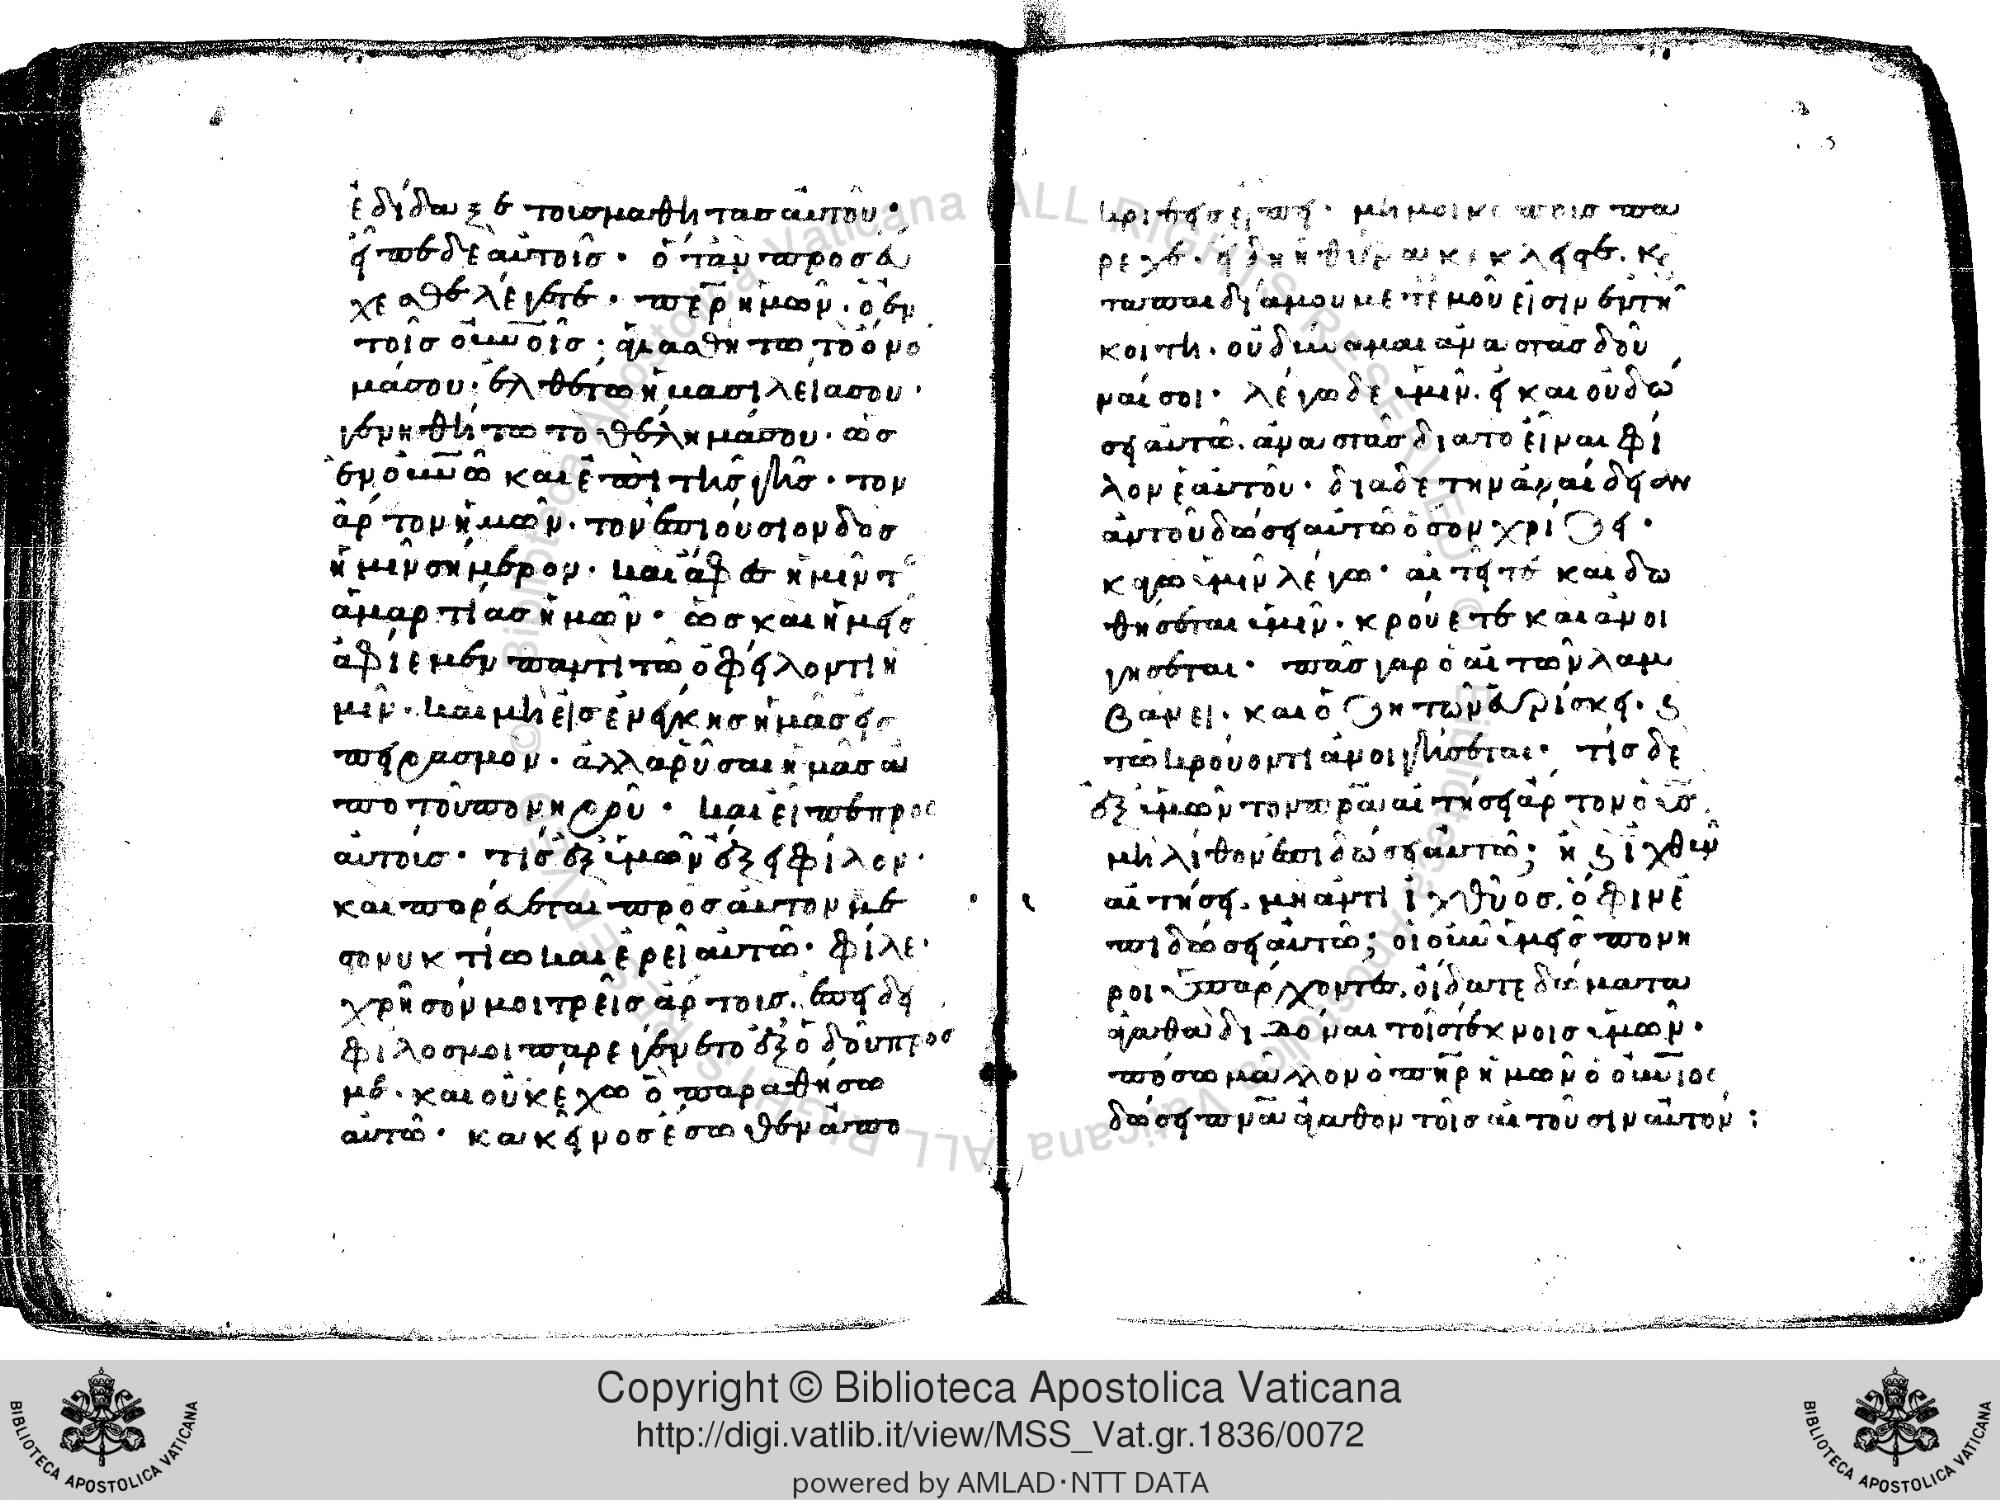 ἐδίδαξε τοισ μαθητασ αὐτοῦ·
εἶπε δὲ αὐτοῖσ· ὅταν προσεύ
χεσθε λέγετε· περ ἡμῶν· ὁ ἐν
τοῖσ οὐνοῖσ· ἁγιασθήτω τὸ ὄνο
μά σου· ἐλθέτω ἡ βασιλεία σου·
γενηθήτω το θέλημά σου· ὡσ
ἐν οὐνῶ και ἐπι τῆσ γῆσ· τον
ἄρτον ἡμῶν· τον ἐπιούσιον δοσ
ἡμῖν σήμερον· και ἄφεσ ἡμῖν τ
ἁμαρτίασ ἡμῶν· ὡσ και ἡμεῖσ
ἀφίεμεν παντι τῶ ὀφείλοντι ἡ
μῖν· και μὴ εἰσενείκησ ἡμᾶσ εἰσ
πειρασμον· ἀλλα ρῦσαι ἡμᾶσ ἀ
πο τοῦ πονηροῦ· και εἶπε προσ
αὐτοίσ· τίσ ἐξ ὑμῶν ἕξει φίλον·
και πορεύεται προσ αὐτον με
σονυκτίω και ἐρεῖ αὐτῶ· φίλε·
χρῆσόν μοι τρεῖσ ἄρτοισ· ἐπειδη
φίλοσ μοι παρεγένετο ἐξ ὁδοῦ προσ
με· και οὐκ ἔχω ὃ παραθήσω
αὐτῶ· κακεῖνοσ ἔσωθεν ἀπο
κριθεὶσ εἴπῃ· μή μοι κόποισ πα
ρεχε· ἤδη ἡ θύρα κέκλεισται· κ
τα παιδία μου μετ' ἐμοῦ εἰσὶν ἐν τῆ
κοίτη· οὐ δύναμαι ἀναστὰσ δοῦ
ναί σοι· λέγω δὲ ὑμῖν· εἰ και οὐ δώ
σει αὐτῶ· ἀναστὰσ δια το εἶναι φί
λον ἑαυτοῦ· δια δε την ἀναίδειαν
αὐτοῦ δώσει αὐτῶ ὅσον χρίζει·
κἀγω ὑμῖν λέγω· αἰτεῖτε και δω
θήσεται ὑμῖν· κρούετε και ἀνοι
γήσεται· πᾶσ γαρ ὁ αἰτῶν λαμ
βάνει· και ὁ ζητῶν εὑρίσκει· κ
τῶ κρούοντι ἀνοιγήσεται· τίσ δε
ἐξ ὑμῶν τον πρα αἰτήσει ἄρτον ὁ υἱὸσ
μὴ λίθον ἐπιδώσει αὐτῶ; ἢ κ ἰχθὺν
αἰτήσει· μὴ ἀντὶ ἰχθύοσ· ὄφιν ἐ
πιδώσει αὐτῶ; οἱ οὖν ὑμεῖσ πονη
ροι ὑπάρχοντεσ· οἴδατε δόματα
ἀγαθα διδόναι τοῖσ τέκνοισ ὑμῶν·
πόσω μᾶλλον ὁ πηρ ἡμῶν ὁ οὐνιοσ
δώσει πνα ἀγαθον τοῖσ αἰτοῦσιν αὐτόν:
Copyright © Biblioteca Apostolica Vaticana
http://digi.vatlib.it/view/MSS_Vat.gr.1836/0072
powered by AMLAD·NTT DATA
BIBLIOTECA APOSTOLICA VATICANA
BIBLIOTECA APOSTOLICA VATICANA